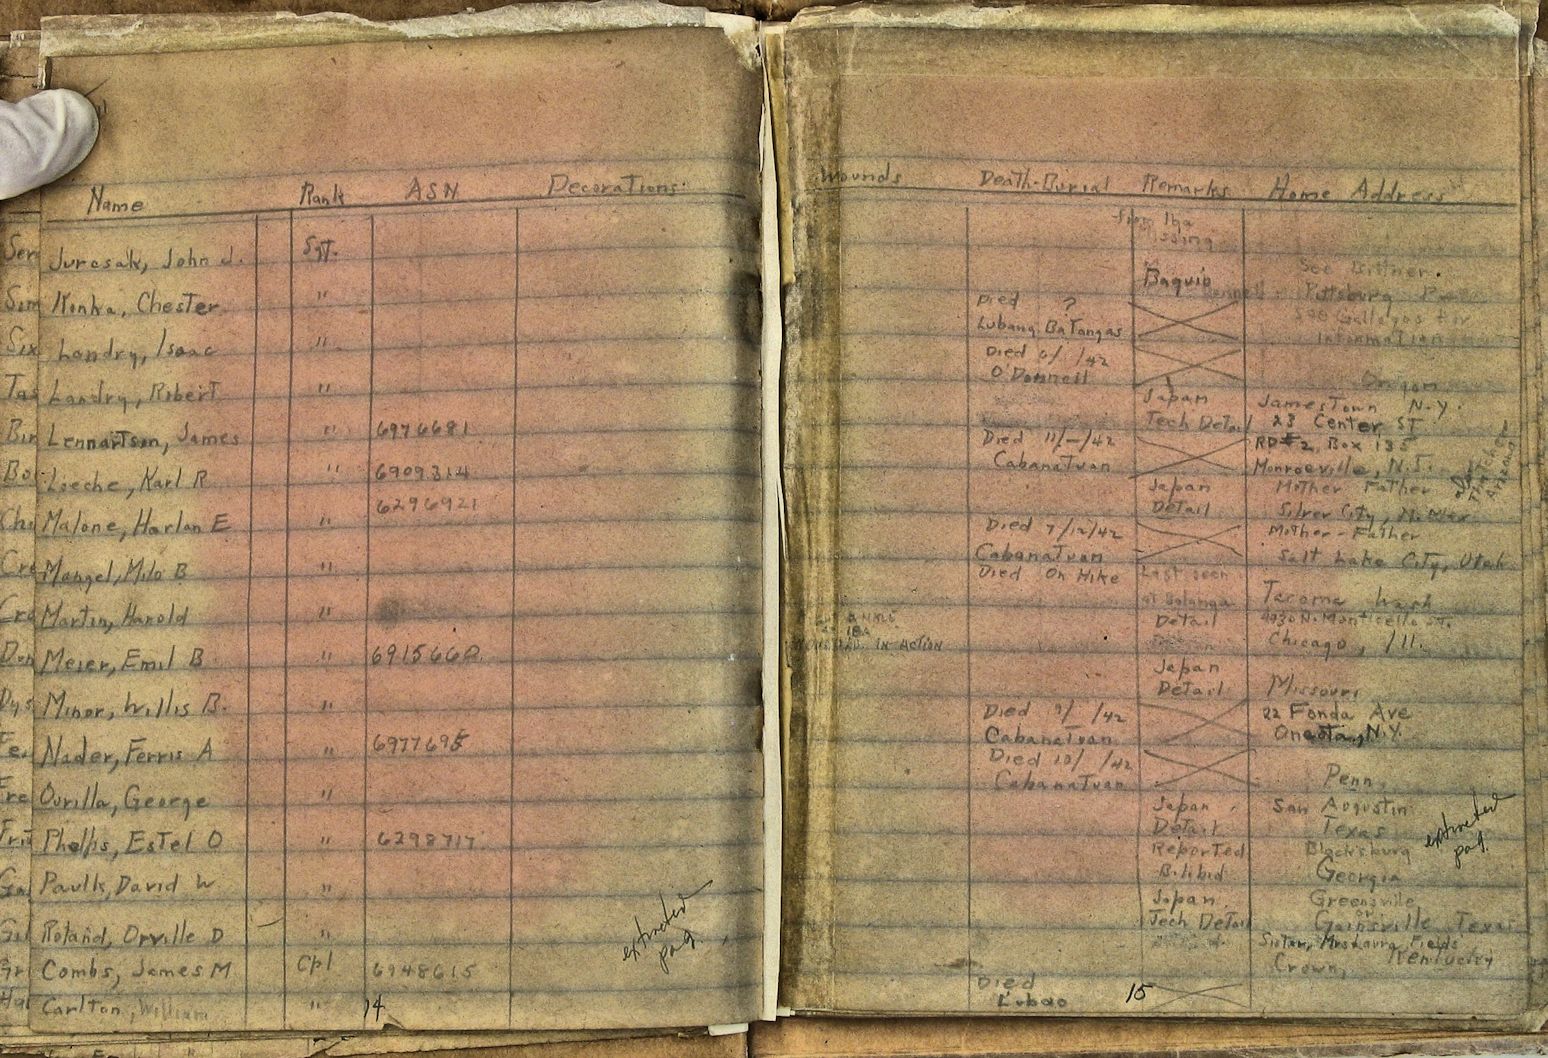 Name Rank ASN Decorations
Jurosak, John J. Sgt.
Kinka, Chester "
Landry, Isaac "
Landry, Robert "
Lennartson, James " 6976681
Loeche, Karl R " 6909314
Malone, Harlan E " 6296921
Mangel, Milo B "
Martin, Harold "
Meier, Emil B " 6915660
Minor, Willis B. "
Nader, Ferris A " 6977695
Ourilla, George "
Phelps, Estel O " 6298717
Paulk, David W "
Roland, Orville D "
Combs, James M Cpl 6948615
Carlton, William "
extracted
pag.
14
Wounds Death-Burial Remarks Home Address
missing
See Bittner.
Baguio
Pittsburg Pa
Died ?
See Gallegos for
Lubang Batangas
information
Died 6/ /42
O'Donnell
Oregon
Japan
Jamestown N.Y.
Tech Detail
23 Center St
Died 11/-/42
RD#2, Box 135
Cabanatuan
Monroeville, N.J.
Japan
Mother Father
Detail
Silver City, N. Mex
Died 7/12/42
Mother-Father
Cabanatuan
Salt Lake City, Utah
Died On Hike
Last seen
at Balanga
Tacoma Wash
Detail
4930 N. Monticello St.
IN ACTION
Chicago, Ill.
Japan
Detail
Missouri
Died 9/ /42
22 Fonda Ave
Cabanatuan
Oneota, N.Y.
Died 10/ /42
Cabanatuan
Penn.
Japan
San Augustin
Detail
Texas
Reported
Blacksburg
Bilibid
Georgia
Japan
Greensville
or
Tech Detail
Gainsville Texas
Sister, Mrs Laura Fields
Kentucky
Crown,
Died
Lubao
extracted
pag.
15